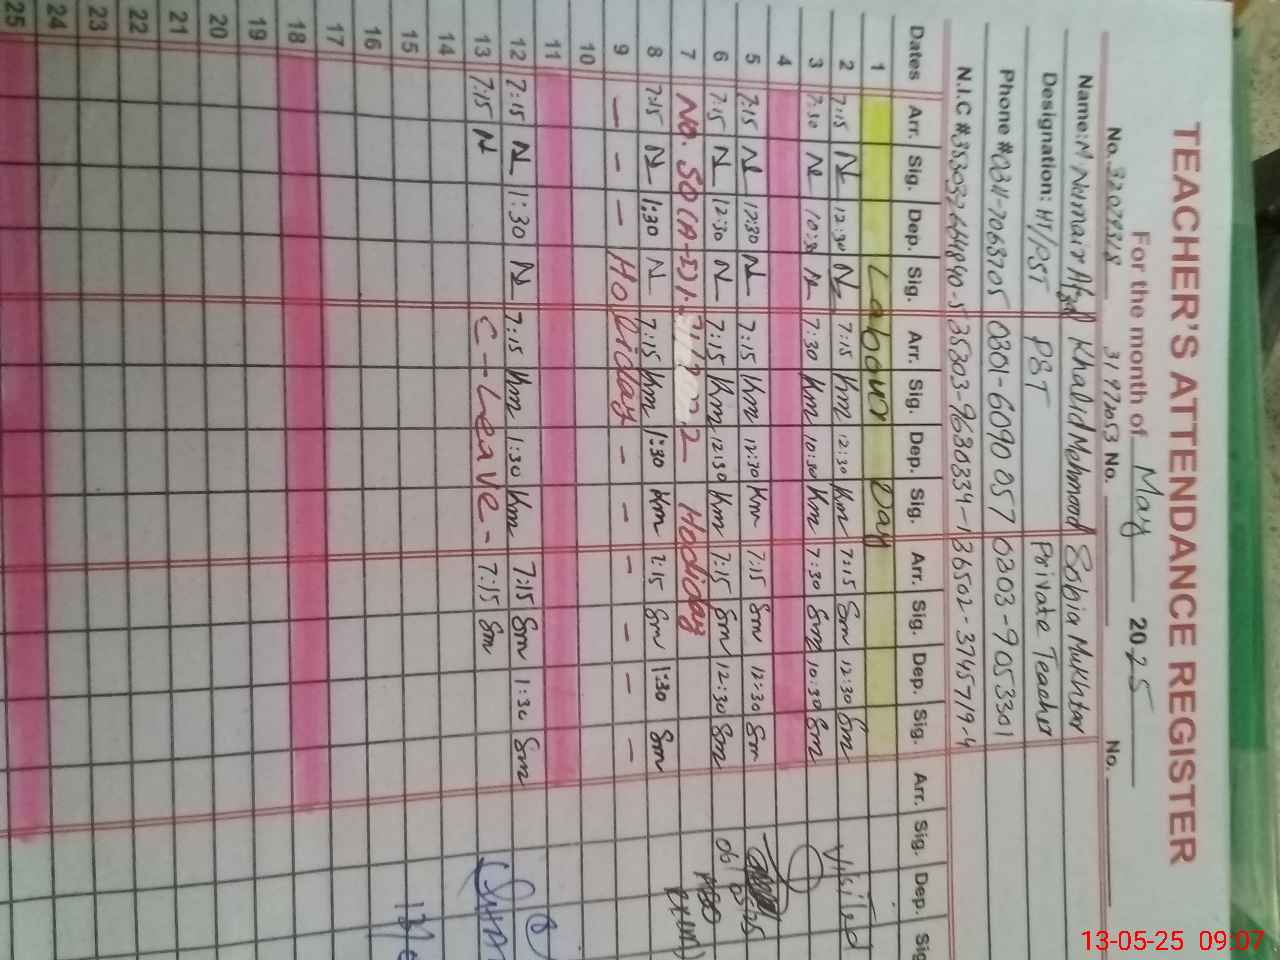 TEACHER'S ATTENDANCE REGISTER
For the month of May 2025
No. 32079318 31972053 No. No.
Name: M Nouman Afzal Khalid Mehmood Sobia Mukhtar
Designation: HT/PST PST Private Teacher
Phone # 0301-6090057 0203-9053301
N.I.C # 35303-9630334-1 36502-3745719-4
Dates Arr. Sig. Dep. Sig. Arr. Sig. Dep. Sig. Arr. Sig. Dep. Sig. Arr. Sig. Dep. Sig
1 Labour Day
2 7:15 N 12:30 N 7:15 Km 12:30 Km 7:15 Sm 12:30 Sm Visited
3 7:30 N 10:30 N 7:30 Km 10:30 Km 7:30 Sm 10:30 Sm
4
5 7:15 N 12:30 N 7:15 Km 12:30 Km 7:15 Sm 12:30 Sm
6 7:15 N 12:30 N 7:15 Km 12:30 Km 7:15 Sm 12:30 Sm
7 No. SO(A-I)1- Hodiday
8 7:15 N 1:30 N 7:15 Km 1:30 Km 7:15 Sm 1:30 Sm
9 - - - Holiday - - - - - -
10
11
12 7:15 N 1:30 N 7:15 Km 1:30 Km 7:15 Sm 1:30 Sm
13 7:15 N C-Leave - 7:15 Sm
14
15
16
17
18
19
20
21
22
23
24
25
13-05-25 09:07